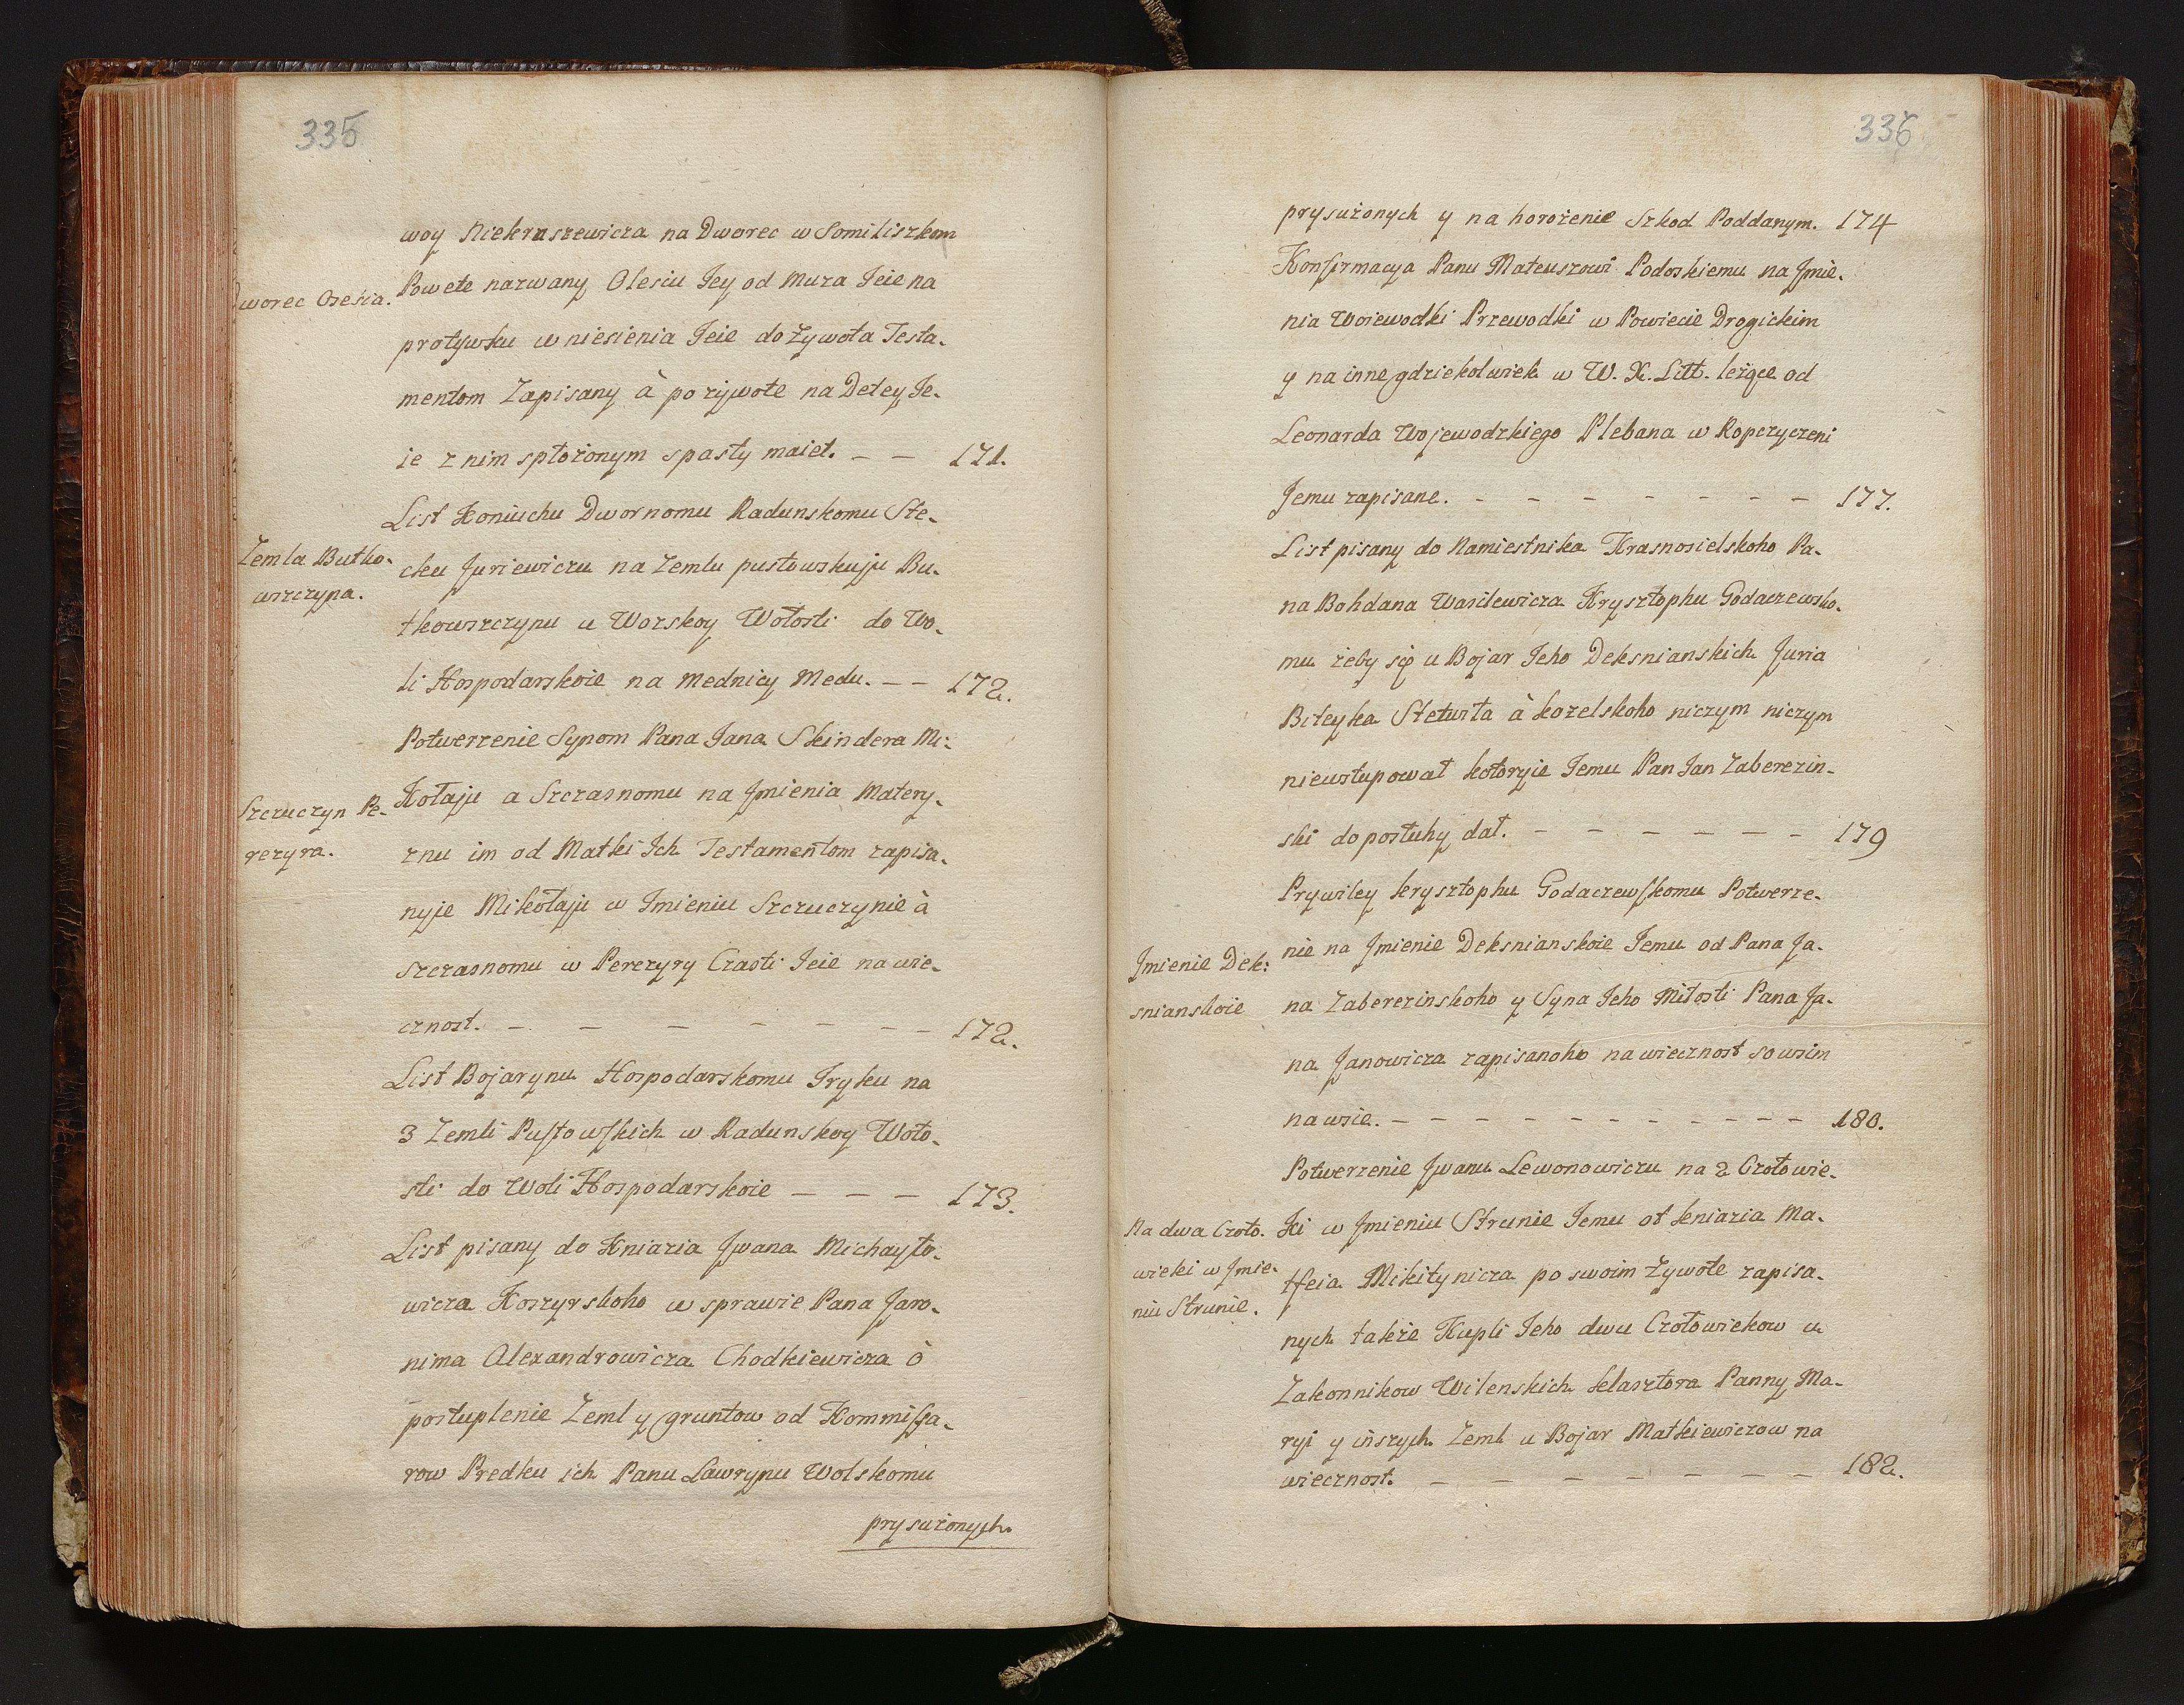 335
woy Niekraszewicza na Dworec w Somiliszkom
Dworec Osesia.
Powete nazwany Olesiu Jey od Muza Jeie na
protywku w niesienia Jeie do Zywota Testa-
mentom Zapisany à po zywote na Detey Je-
ie z nim spłożonym spasty maiet. — — 171.
List Koniuchu Dwornomu Radunskomu Ste-
Zemla Butko-
wszczyna.
cku Juriewiczu na Zemlu pustowskuju Bu-
tkowszczynu u Worskoy Wołosti do Wo-
li Hospodarskoie na Mednicy Medu. — — 172.
Potwerzenie Synom Pana Jana Skindera Mi-
Szczuczyn Pe-
rezyra.
Kołaju a Szczasnomu na Jmienia Matery-
znu im od Matki Jch Testamentom zapisa-
nyje Mikołaju w Jmieniu Szczuczynie à
szczasnomu w Perezyry Czasti Jeie na wie-
cznost. — — — — — — — 172.
List Bojarynu Hospodarskomu Jryku na
3 Zemli Pustowskich w Radunskoy Woło-
sti do Woli Hospodarskoie — — — 173.
List pisany do Kniazia Jwana Michayło-
wicza Koszyrskoho w sprawie Pana Jaro-
nima Alexandrowicza Chodkiewicza ò
postuplenie Zeml y gruntow od Kommissa-
row Predku ich Panu Lawrynu Wolskomu
prysużonych.
336
prysużonych y na horożenie Szkod Poddanym. 174
Konfirmacya Panu Mateuszowi Podoskiemu na Jmie-
nia Woiewodki Przewodki w Powiecie Drogickim
y na inne gdziekolwiek w W. X. Litt. leżące od
Leonarda Wojewodzkiego Plebana w Kopczyczeni
Jemu zapisane. — — — — — — — 177.
List pisany do Namiestnika Krasnosielskoho Pa-
na Bohdana Wasilewicza Krysztophu Godaczewsko-
mu żeby się u Bojar Jeho Deksnianskich Juria
Biteyka Stetuita à kozelskoho niczym niczym
nieustupował kotoryie Jemu Pan Jan Zaberezin-
ski do posłuhy dał. — — — — — — 179
Prywiley krysztophu Godaczewskomu Potwerze-
Jmienie Dek:
snianskoie
nie na Jmienie Deksnianskoie Jemu od Pana Ja-
na Zaberezinskoho y Syna Jeho Miłosti Pana Ja-
na Janowicza zapisanoho na wiecznost so wsim
na wsie. — — — — — — — — — — 180.
Potwerzenie Jwanu Lewonowiczu na 2 Czołowie-
Na dwa Czoło-
wieki w Jmie-
niu Strunie.
ki w Jmieniu Strunie Jemu ot kniazia Ma-
tfeia Mikitynicza po swoim Zywote zapisa-
nych także Kupli Jeho dwu Czołowiekow u
Zakonnikow Wilenskich klasztora Panny Ma-
ryi y inszych Zeml u Bojar Matkiewiczow na
wiecznost. — — — — — — — 182.